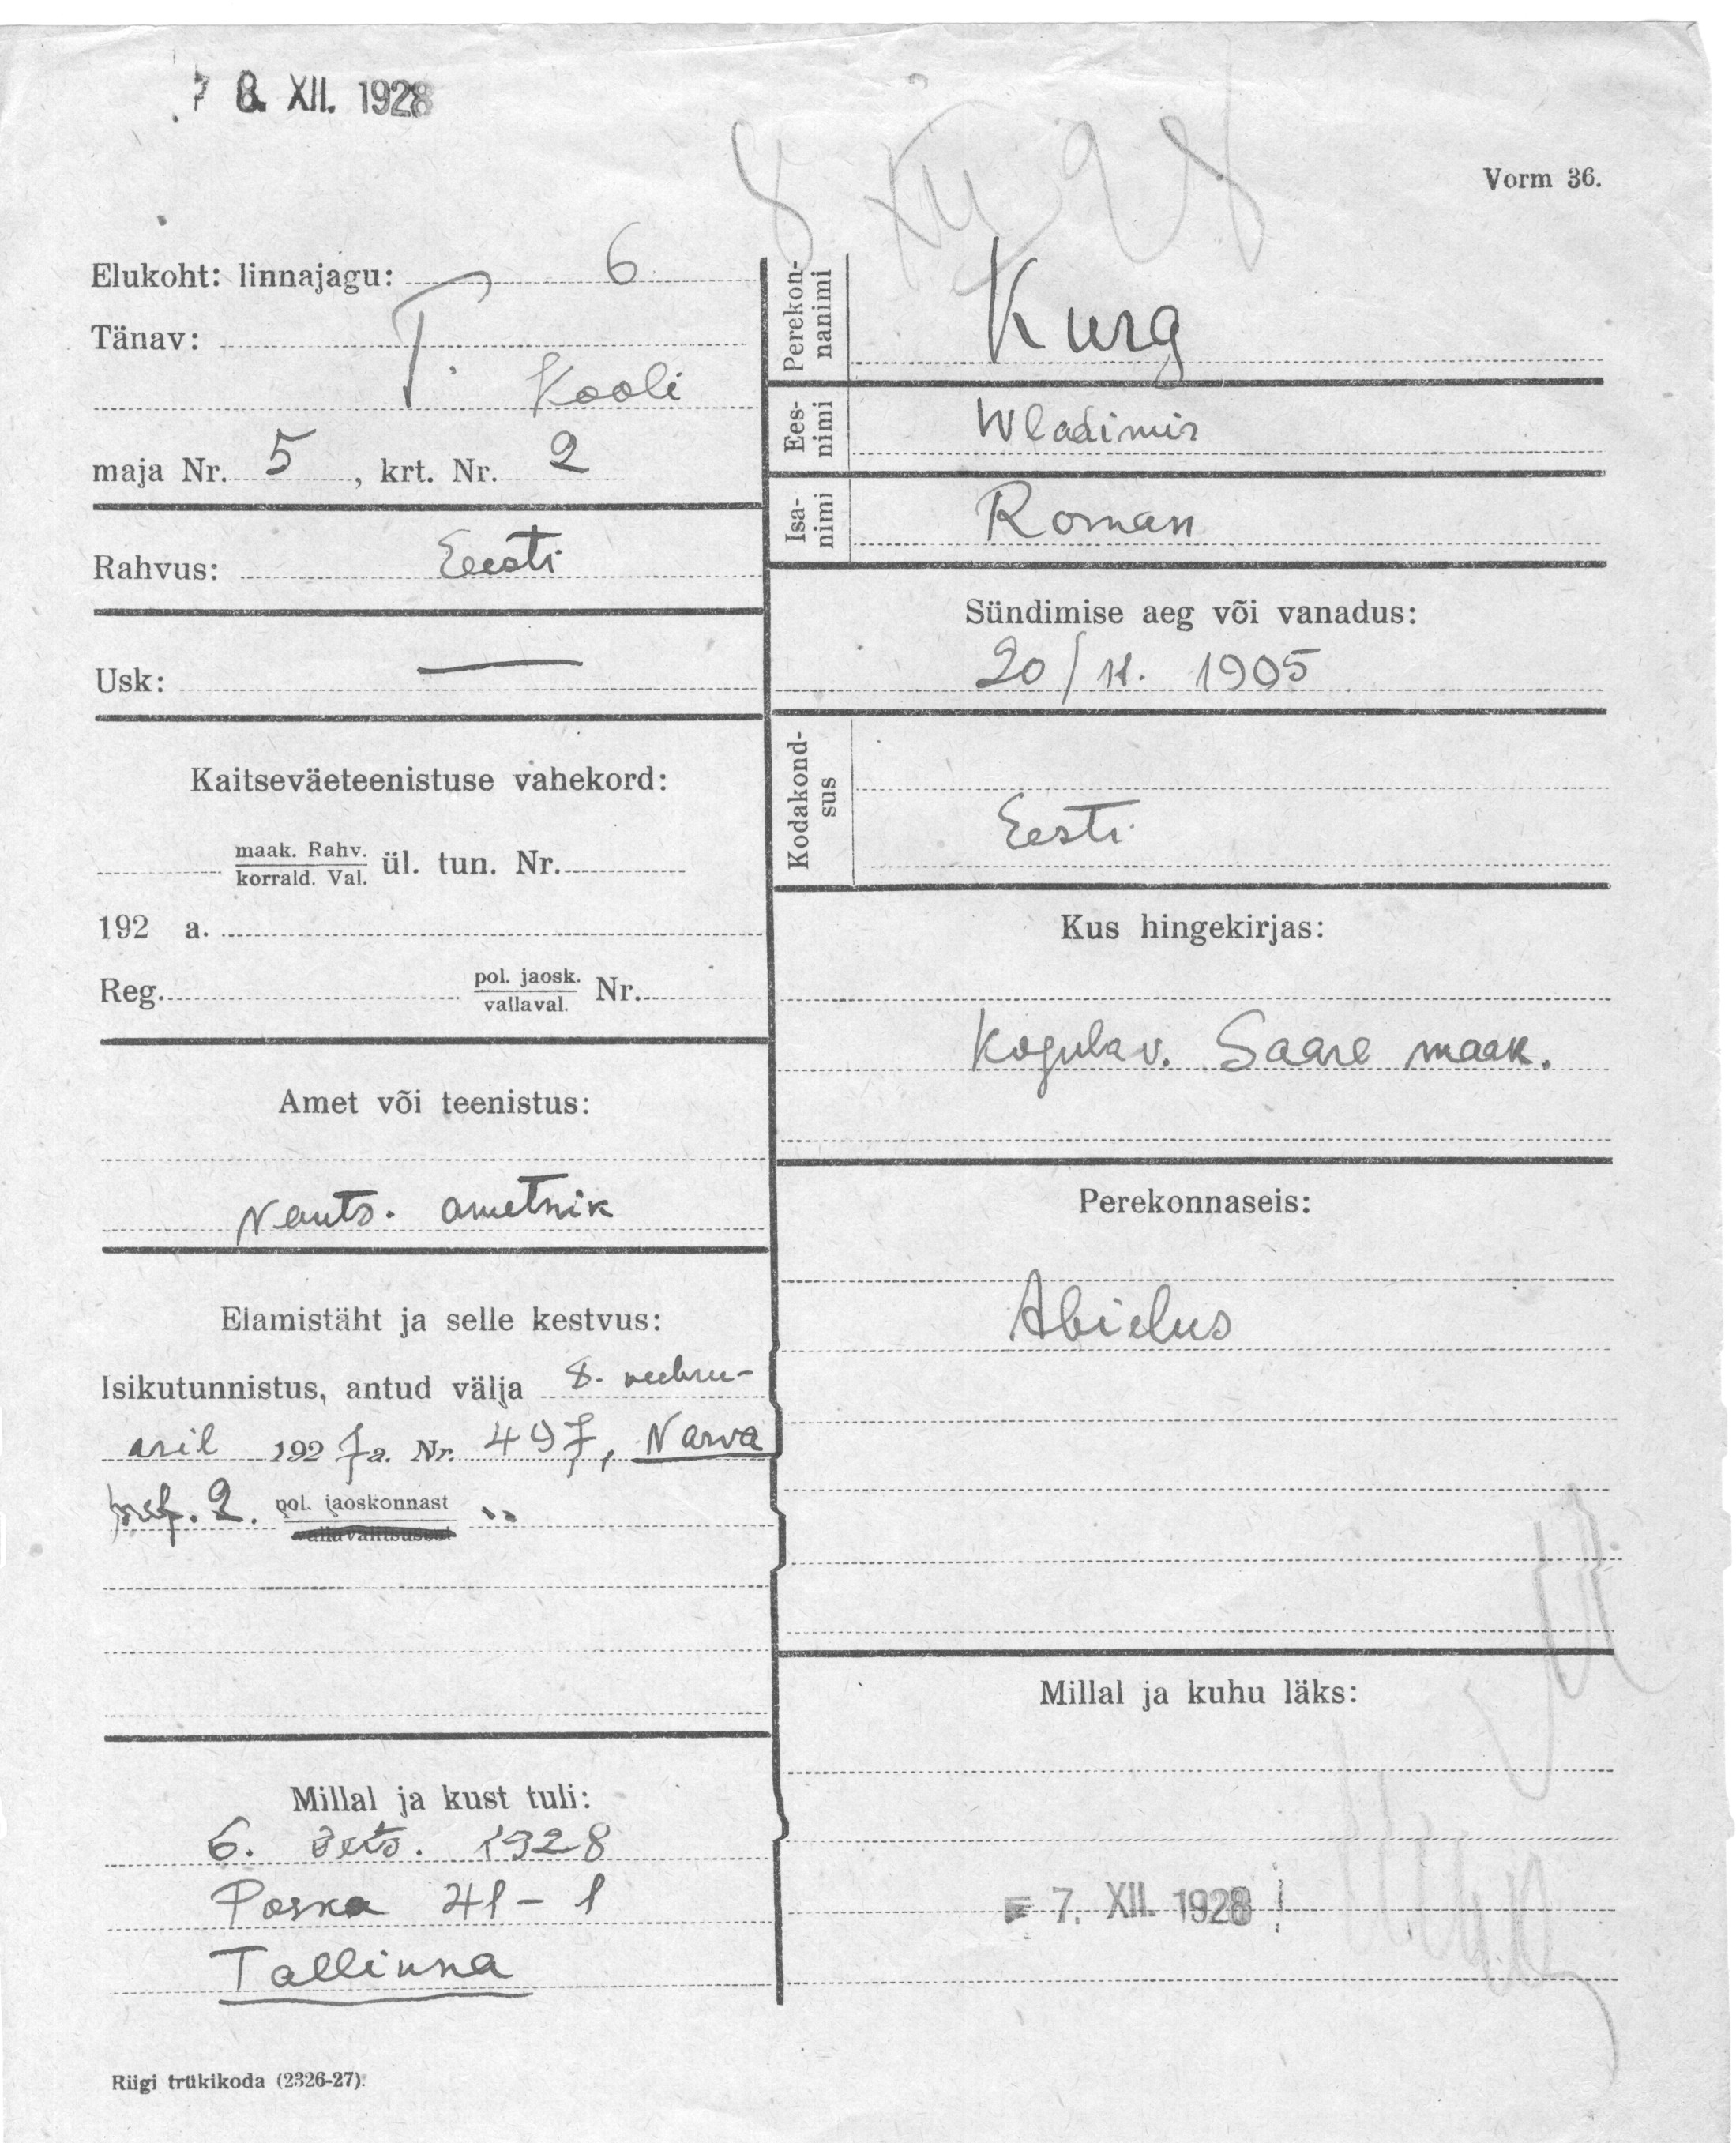 8. XII. 1928
8 XII 28
Vorm 36.
Elukoht: linnajagu: 6
Tänav: T.
Kooli
maja Nr. 5, krt. Nr. 2
Rahvus: Eesti
Usk: —
Kaitseväeteenistuse vahekord:
maak. Rahv.
korrald. Val. ül. tun. Nr.
192 a.
Reg. pol. jaosk.
vallaval. Nr.
Amet või teenistus:
ametnik
Elamistäht ja selle kestvus:
Isikutunnistus, antud välja 8. veebru-
aril 1927 a. Nr. 497, Narva
pref. 2. pol. jaoskonnast
vallavalitsusest
Millal ja kust tuli:
6. dets. 1928
Poska 41-1
Tallinna
Riigi trükikoda (2326-27).
Perekon-
nanimi Kurg
Ees-
nimi Wladimir
Isa-
nimi Roman
Sündimise aeg või vanadus:
20/ 1905
Kodakond-
sus Eesti
Kus hingekirjas:
Kogula v. Saare maak.
Perekonnaseis:
Abielus
Millal ja kuhu läks:
7. XII. 1928